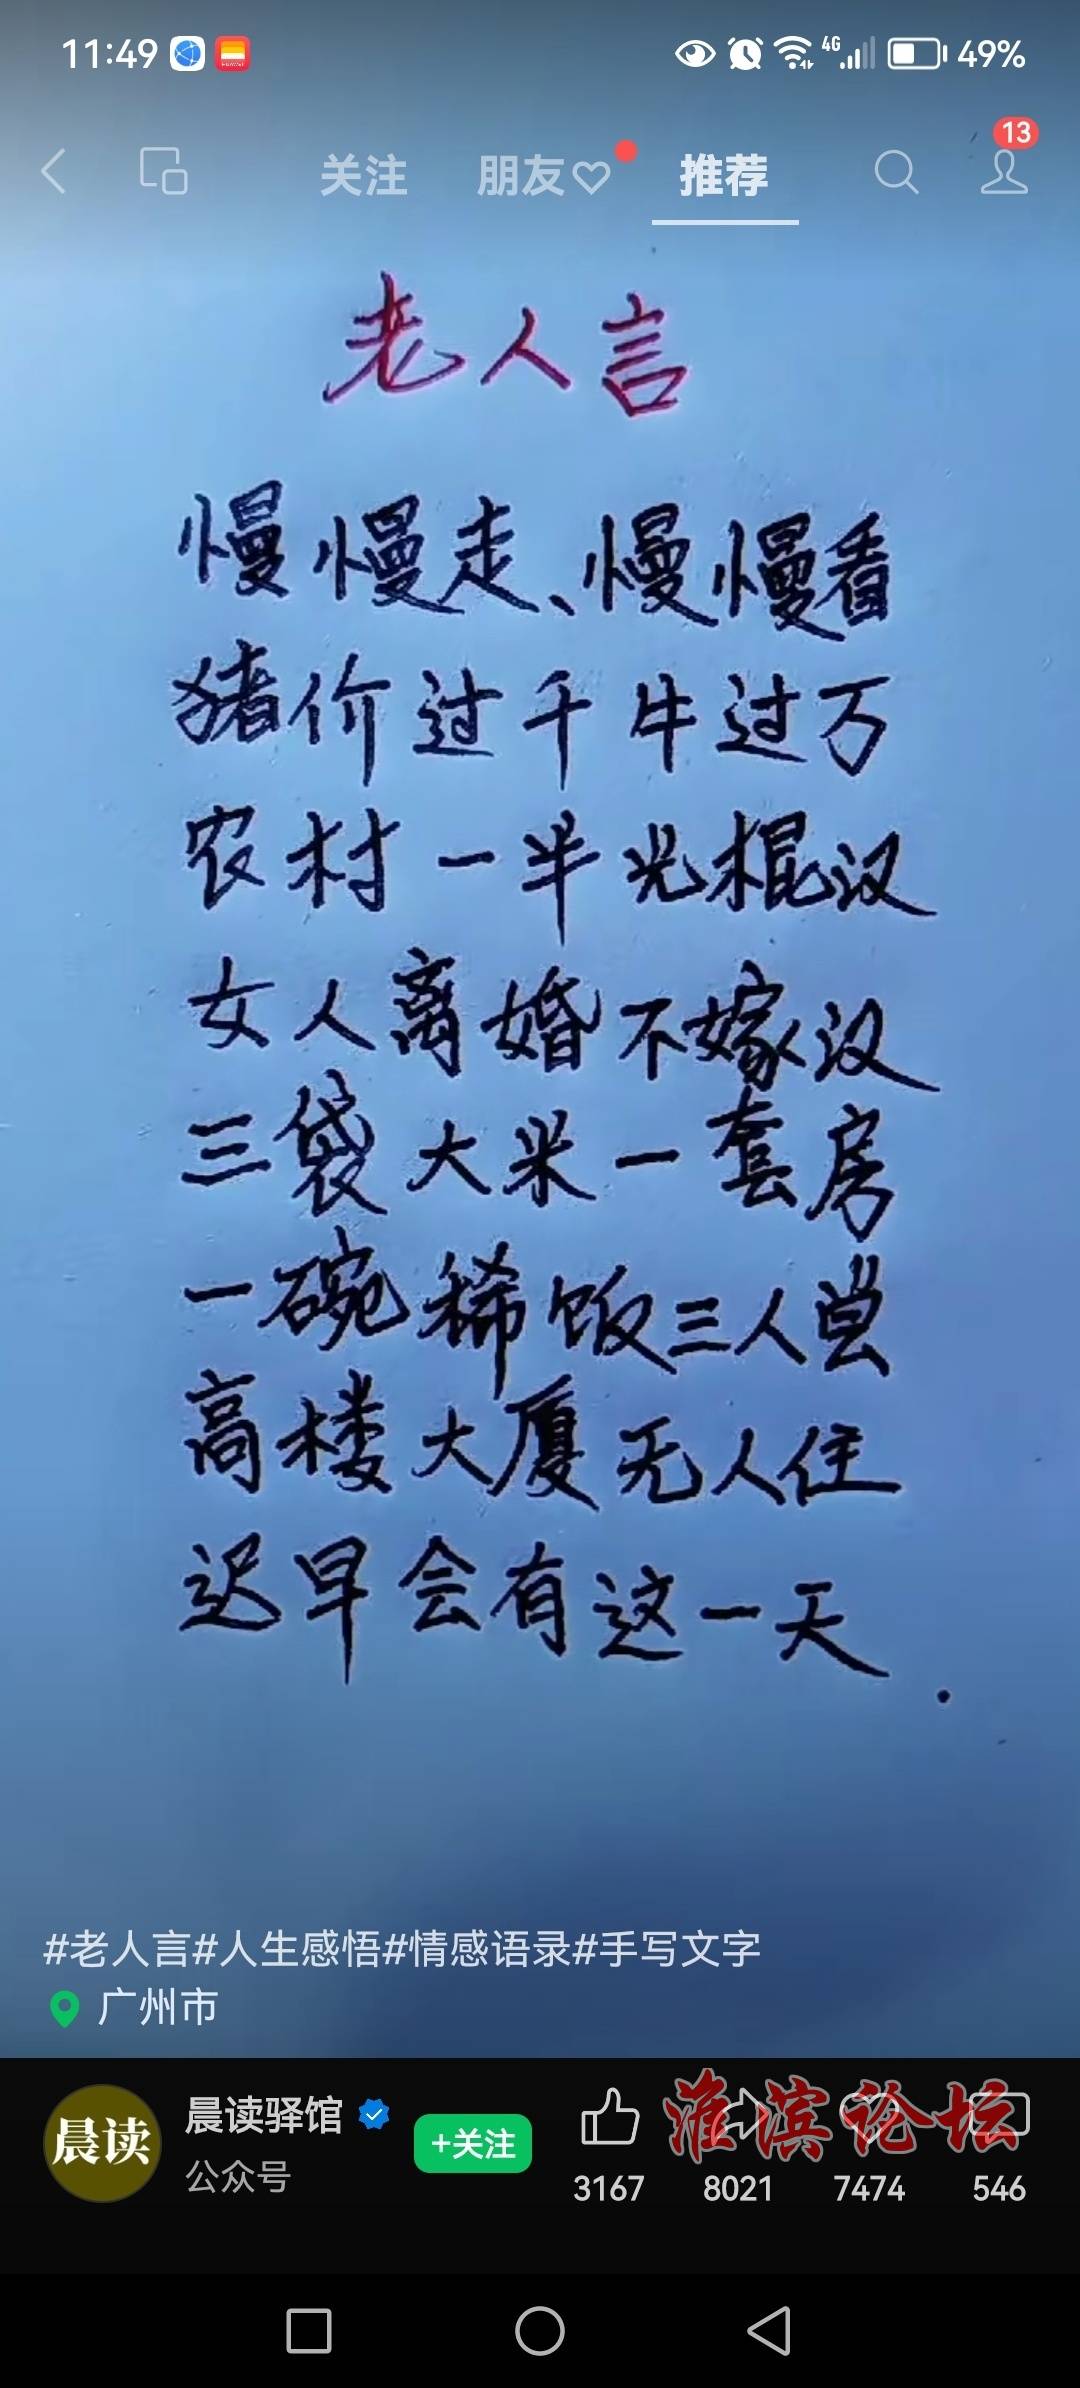 11:49
4G
49%
关注 朋友 推荐
13
老人言
慢慢走、慢慢看
猪价过千牛过万
农村一半光棍汉
女人离婚不嫁汉
三袋大米一套房
一碗稀饭三人尝
高楼大厦无人住
迟早会有这一天.
#老人言#人生感悟#情感语录#手写文字
广州市
晨读
晨读驿馆
公众号
+关注
淮滨论坛
3167 8021 7474 546